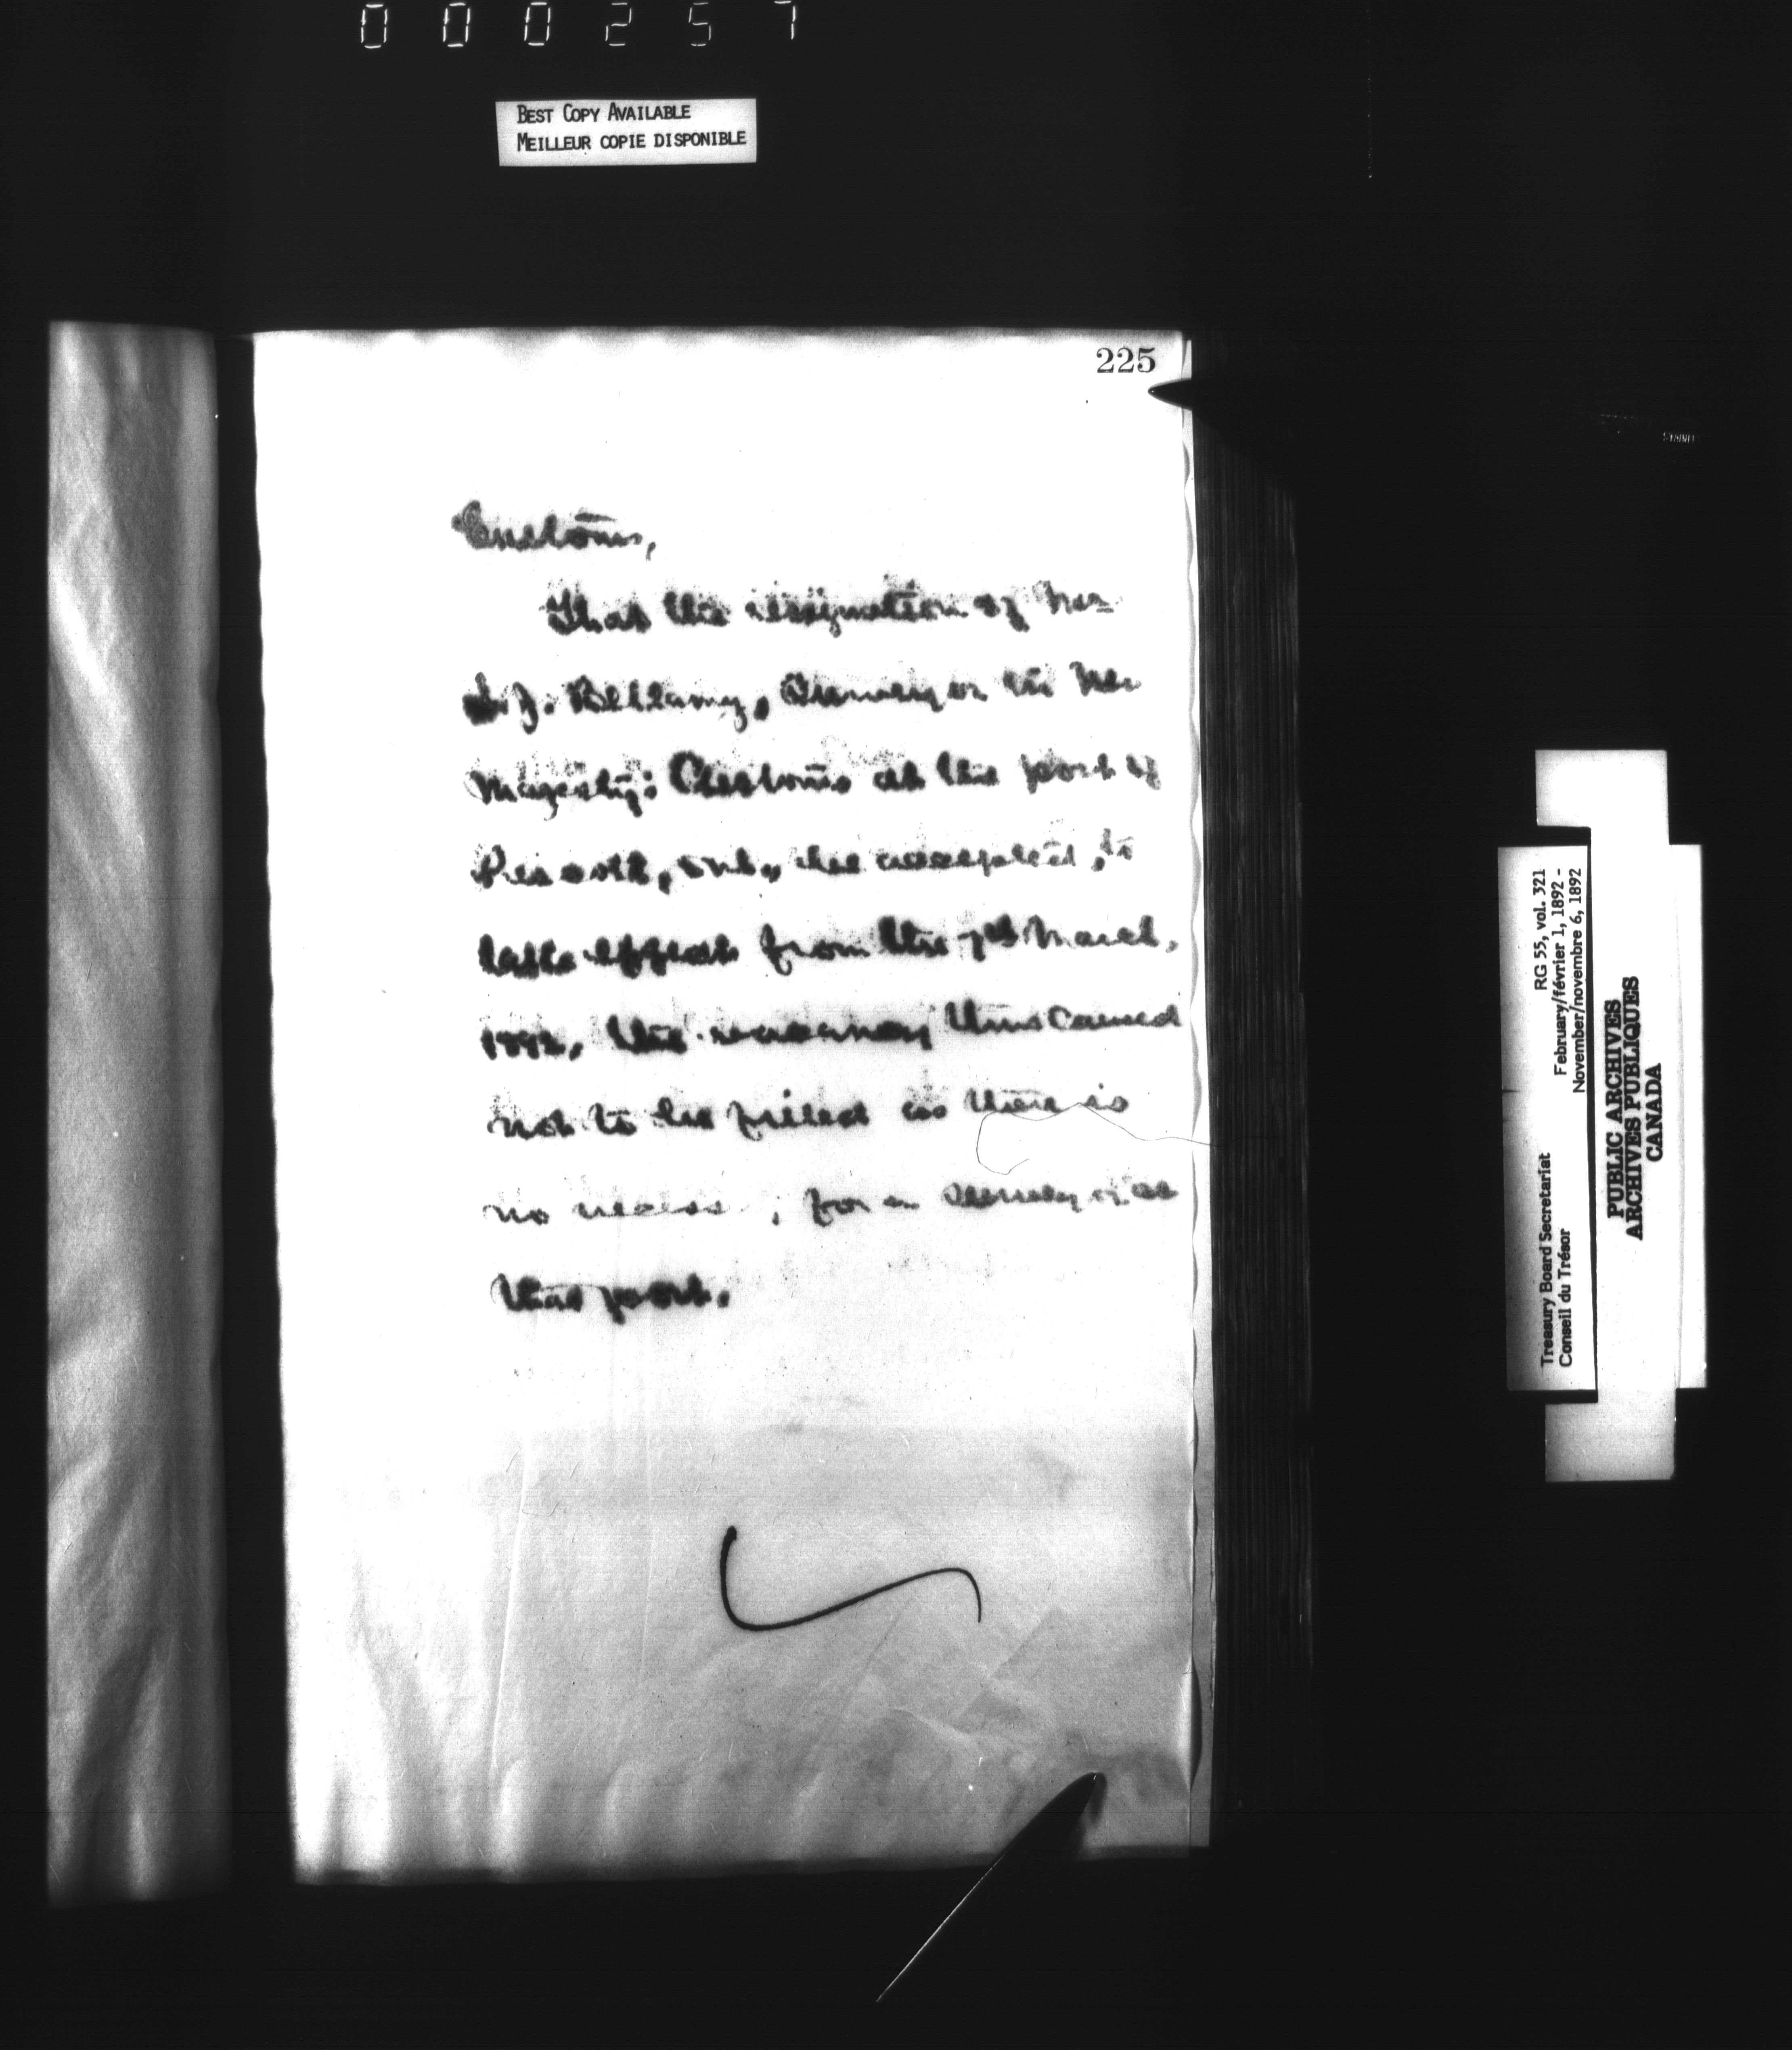 000257
BEST COPY AVAILABLE
MEILLEUR COPIE DISPONIBLE
225
Customs,
That the resignation of Mr
J. Bellamy, Surveyor in Her
Majesty's Customs at the port of
Prescott, Ont., be accepted, to
take effect from the March,
1892, the vacancy thus caused
not to be filled as there is
no , for a Surveyor at
that port.
Treasury Board Secretariat RG 55, vol. 321
Conseil du Trésor February/février 1, 1892 -
November/novembre 6, 1892
PUBLIC ARCHIVES
ARCHIVES PUBLIQUES
CANADA